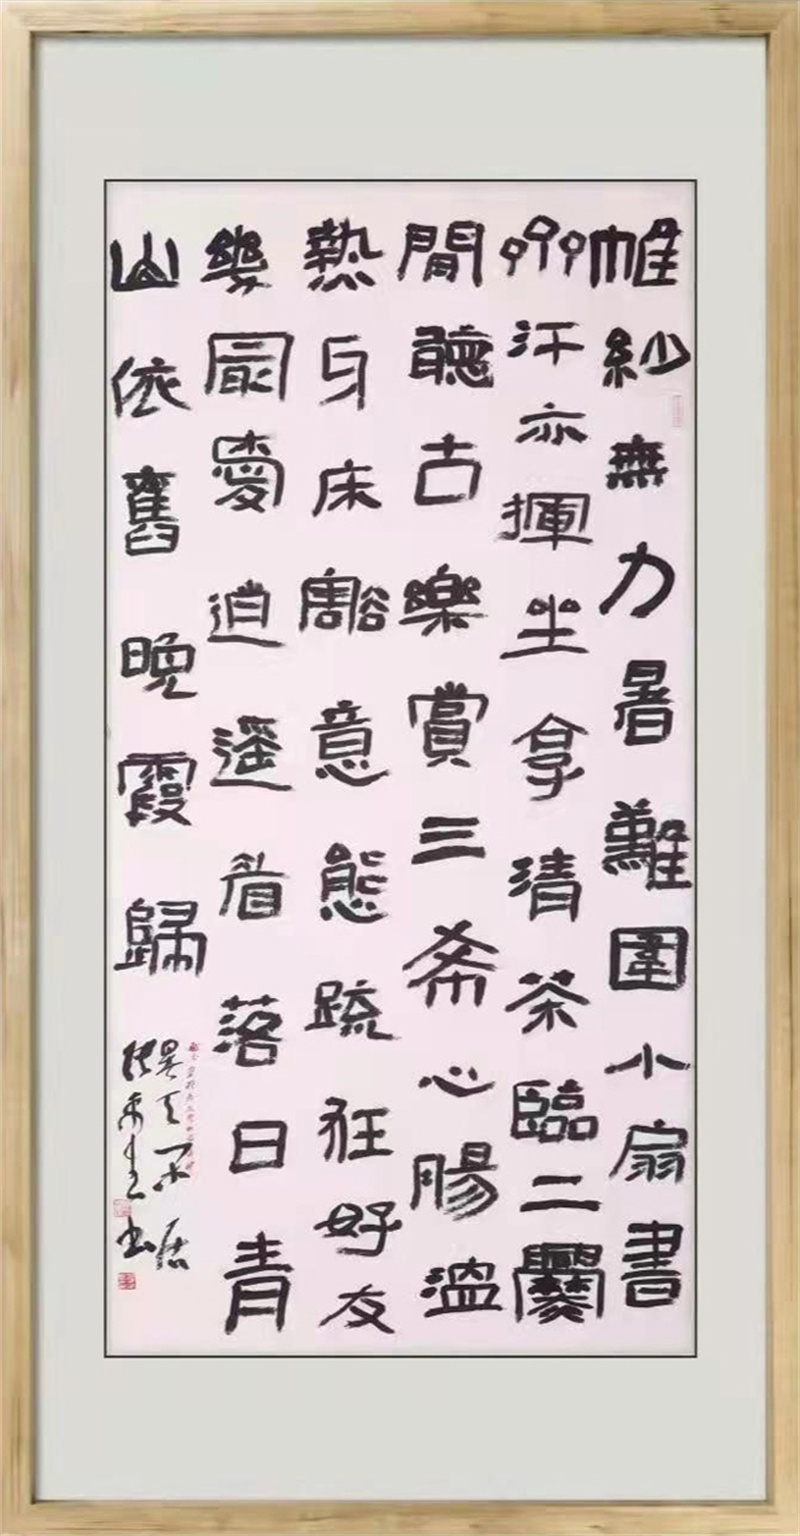 帷紗無力暑難圍小扇書
汗亦揮坐拿清茶臨二爨
閒聽古樂賞三希心腸溫
熱身床豁意態疏狂好友
幾最愛逍遥看落日青
山依舊晚霞歸
書